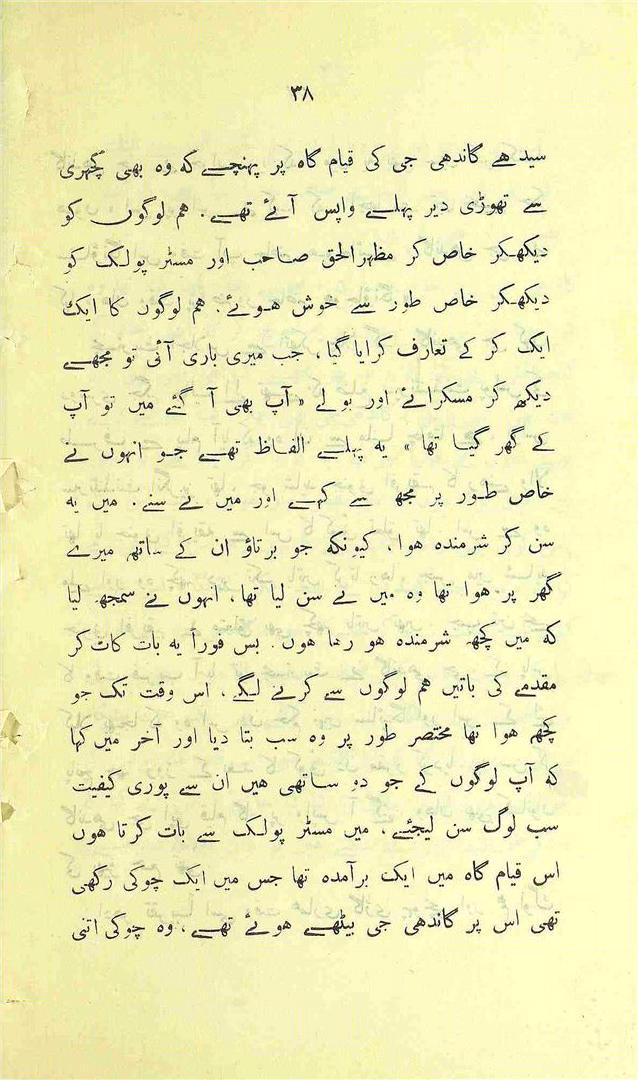 ۳۸
سیدھے گاندھی جی کی قیام گاہ پر پہنچے کہ وہ بھی کچہری
سے تھوڑی دیر پہلے واپس آئے تھے۔ ہم لوگوں کو
دیکھکر خاص کر مظہرالحق صاحب اور مسٹر پولک کو
دیکھکر خاص طور سے خوش ہوئے۔ ہم لوگوں کا ایک
ایک کر کے تعارف کرایا گیا، جب میری باری آئی تو مجھے
دیکھ کر مسکرائے اور بولے «آپ بھی آ گئے میں تو آپ
کے گھر گیا تھا» یہ پہلے الفاظ تھے جو انہوں نے
خاص طور پر مجھ سے کہے اور میں نے سنے۔ میں یہ
سن کر شرمندہ ہوا، کیونکہ جو برتاؤ ان کے ساتھ میرے
گھر پر ہوا تھا وہ میں نے سن لیا تھا، انہوں نے سمجھ لیا
کہ میں کچھ شرمندہ ہو رہا ہوں۔ بس فوراً یہ بات کاٹ کر
مقدمے کی باتیں ہم لوگوں سے کرنے لگے، اس وقت تک جو
کچھ ہوا تھا مختصر طور پر وہ سب بتا دیا اور آخر میں کہا
کہ آپ لوگوں کے جو دو ساتھی ہیں ان سے پوری کیفیت
سب لوگ سن لیجئے، میں مسٹر پولک سے بات کرتا ہوں
اس قیام گاہ میں ایک برآمدہ تھا جس میں ایک چوکی رکھی
تھی اس پر گاندھی جی بیٹھے ہوئے تھے، وہ چوکی اتنی